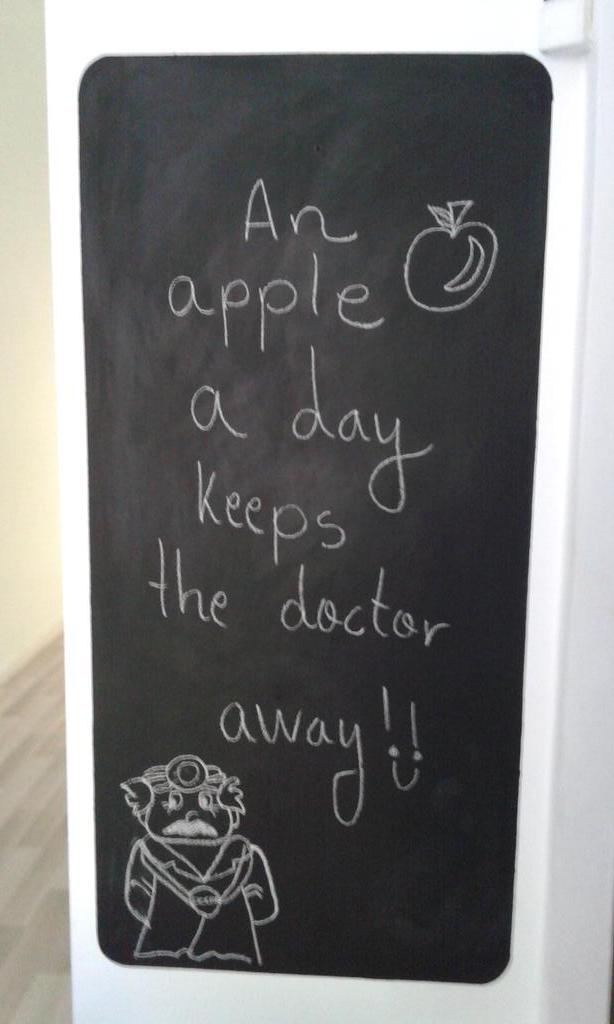 An
apple
a day
keeps
the doctor
away!!